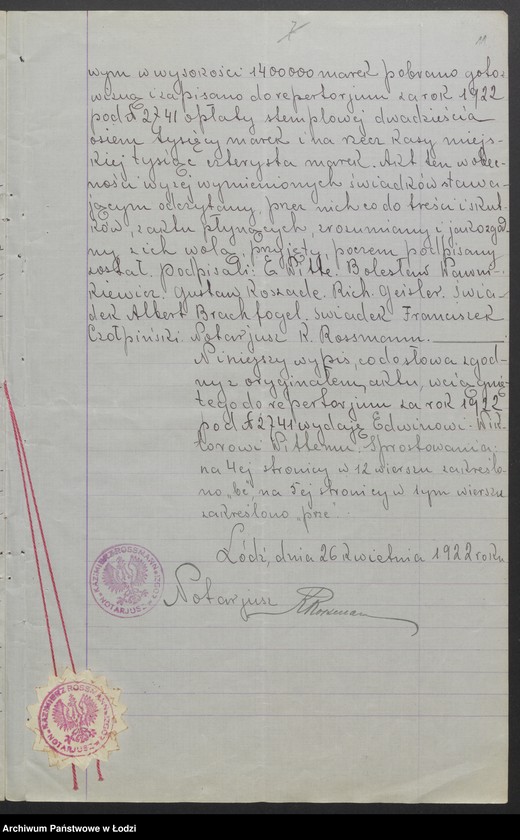 7
11
wym w wysokości 1400000 marek pobrano goto-
wizną i zapisano do repertorjum za rok 1922
pod № 2741 opłaty stemplowej dwadzieścia
osiem tysięcy marek i na rzecz kasy miejs-
kiej tysiąc czterysta marek. Akt ten w obec-
ności wyżej wymienionych świadków stawa-
jącym odczytany, przez nich co do treści i skut-
ków, z aktu płynących, zrozumiany i jako zgod-
ny z ich wolą, przyjęty, poczem podpisany
został. Podpisali: E Witte. Bolesław Wawrz-
kiewicz. Gustaw Koszade. Rich. Geisler. Świa-
dek Albert Brachfogel. Świadek Franciszek
Czołpiński. Notarjusz K. Rossmann.
Niniejszy wypis, co do słowa zgod-
ny z oryginałem aktu, wciągnię-
tego do repertorjum za rok 1922
pod № 2741 wydaję Edwinowi-Wik-
torowi Wittemu. Sprostowania:
na 4ej stronicy w 12 wierszu zakreślo-
no „bc”, na 5ej stronicy w 1ym wierszu
zakreślono „prze”.
Łódź, dnia 26 kwietnia 1922 roku
Notarjusz KRossman
KAZIMIERZ ROSSMANN
NOTARJUSZ
ŁODZI
KAZIMIERZ ROSSMANN
NOTARJUSZ
ŁODZI
Archiwum Państwowe w Łodzi